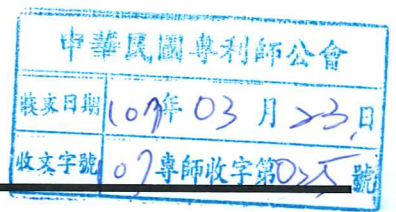 中華民國專利師公會
收文日期 107年 03 月 23 日
收文字號 07專師收字第025號